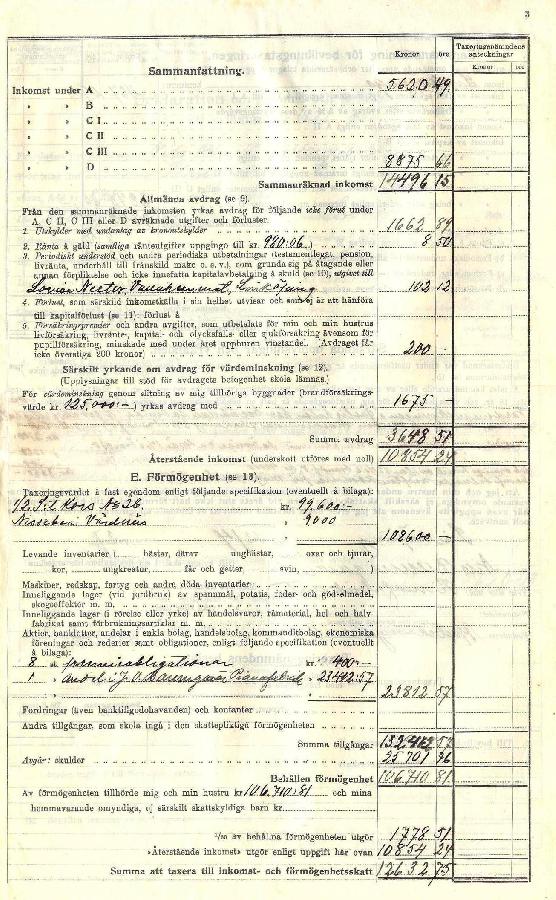 3
Taxeringsnämndens
anteckningar
Kronor öre
Kronor öre
Sammanfattning.
Inkomst under A 5620 49
» » B
» » C I
» » C II
» » C III
» » D 8875 66
Sammanräknad inkomst 14496 15
Allmänna avdrag (se 9).
Från den sammanräknade inkomsten yrkas avdrag för följande icke förut under
A, C II, C III eller D avräknade utgifter och förluster:
1. Utskylder med undantag av kronoutskylder 1662 89
2. Ränta å gäld (samtliga ränteutgifter uppgingo till kr. 980.06.) 8 50
3. Periodiskt understöd och andra periodiska utbetalningar (testamentlegat, pension,
livränta, underhåll till frånskild make o. s. v.), som grunda sig på åtagande eller
annan förpliktelse och icke innefatta kapitalavbetalning å skuld (se 10), utgivet till
102 12
4. Förlust, som särskild inkomstkälla i sin helhet utvisar och som ej är att hänföra
till kapitalförlust (se 11): förlust å
5. Försäkringspremier och andra avgifter, som utbetalats för min och min hustrus
livförsäkring, livränte-, kapital- och olycksfalls- eller sjukförsäkring ävensom för
pupillförsäkring, minskade med under året uppburen vinstandel. Avdraget får
icke överstiga 200 kronor) 200 —
Särskilt yrkande om avdrag för värdeminskning (se 12).
(Upplysningar till stöd för avdragets befogenhet skola lämnas.)
För värdeminskning genom slitning av mig tillhöriga byggnader (brandförsäkrings-
värde kr. 125,000:—) yrkas avdrag med 1675 —
Summa avdrag 3648 51
Återstående inkomst (underskott utföres med noll) 10854 24
E. Förmögenhet (se 13).
Taxeringsvärdet å fast egendom enligt följande specifikation (eventuellt å bilaga):
1/2 S:t Kors No 36, kr. 99,600:—
» 9000
108600 —
Levande inventarier ( hästar, därav unghästar, oxar och tjurar,
kor, ungkreatur, får och getter, svin, )
Maskiner, redskap, fartyg och andra döda inventarier
Inneliggande lager (vid jordbruk) av spannmål, potatis, foder- och göd-elmedel,
skogseffekter m. m.
Inneliggande lager (i rörelse eller yrke) av handelsvaror, råmaterial, hel- och halv-
fabrikat samt förbrukningsartiklar m. m.
Aktier, banklotter, andelar i enkla bolag, handelsbolag, kommanditbolag, ekonomiska
föreningar och rederier samt obligationer, enligt följande specifikation (eventuellt
å bilaga):
8 st. premieobligationer kr. 400:—
1 » andel i J. O. Pianofabrik » 23412:57
23812 57
Fordringar (även banktillgodohavanden) och kontanter
Andra tillgångar, som skola ingå i den skattepliktiga förmögenheten
Summa tillgångar 132412 57
Avgår: skulder 25701 76
Behållen förmögenhet 106.710 81
Av förmögenheten tillhörde mig och min hustru kr 106.710:81 och mina
hemmavarande omyndiga, ej särskilt skattskyldiga barn kr.
1/60 av behållna förmögenheten utgör 1778 51
»Återstående inkomst» utgör enligt uppgift här ovan 10854 24
Summa att taxera till inkomst- och förmögenhetsskatt 12632 75